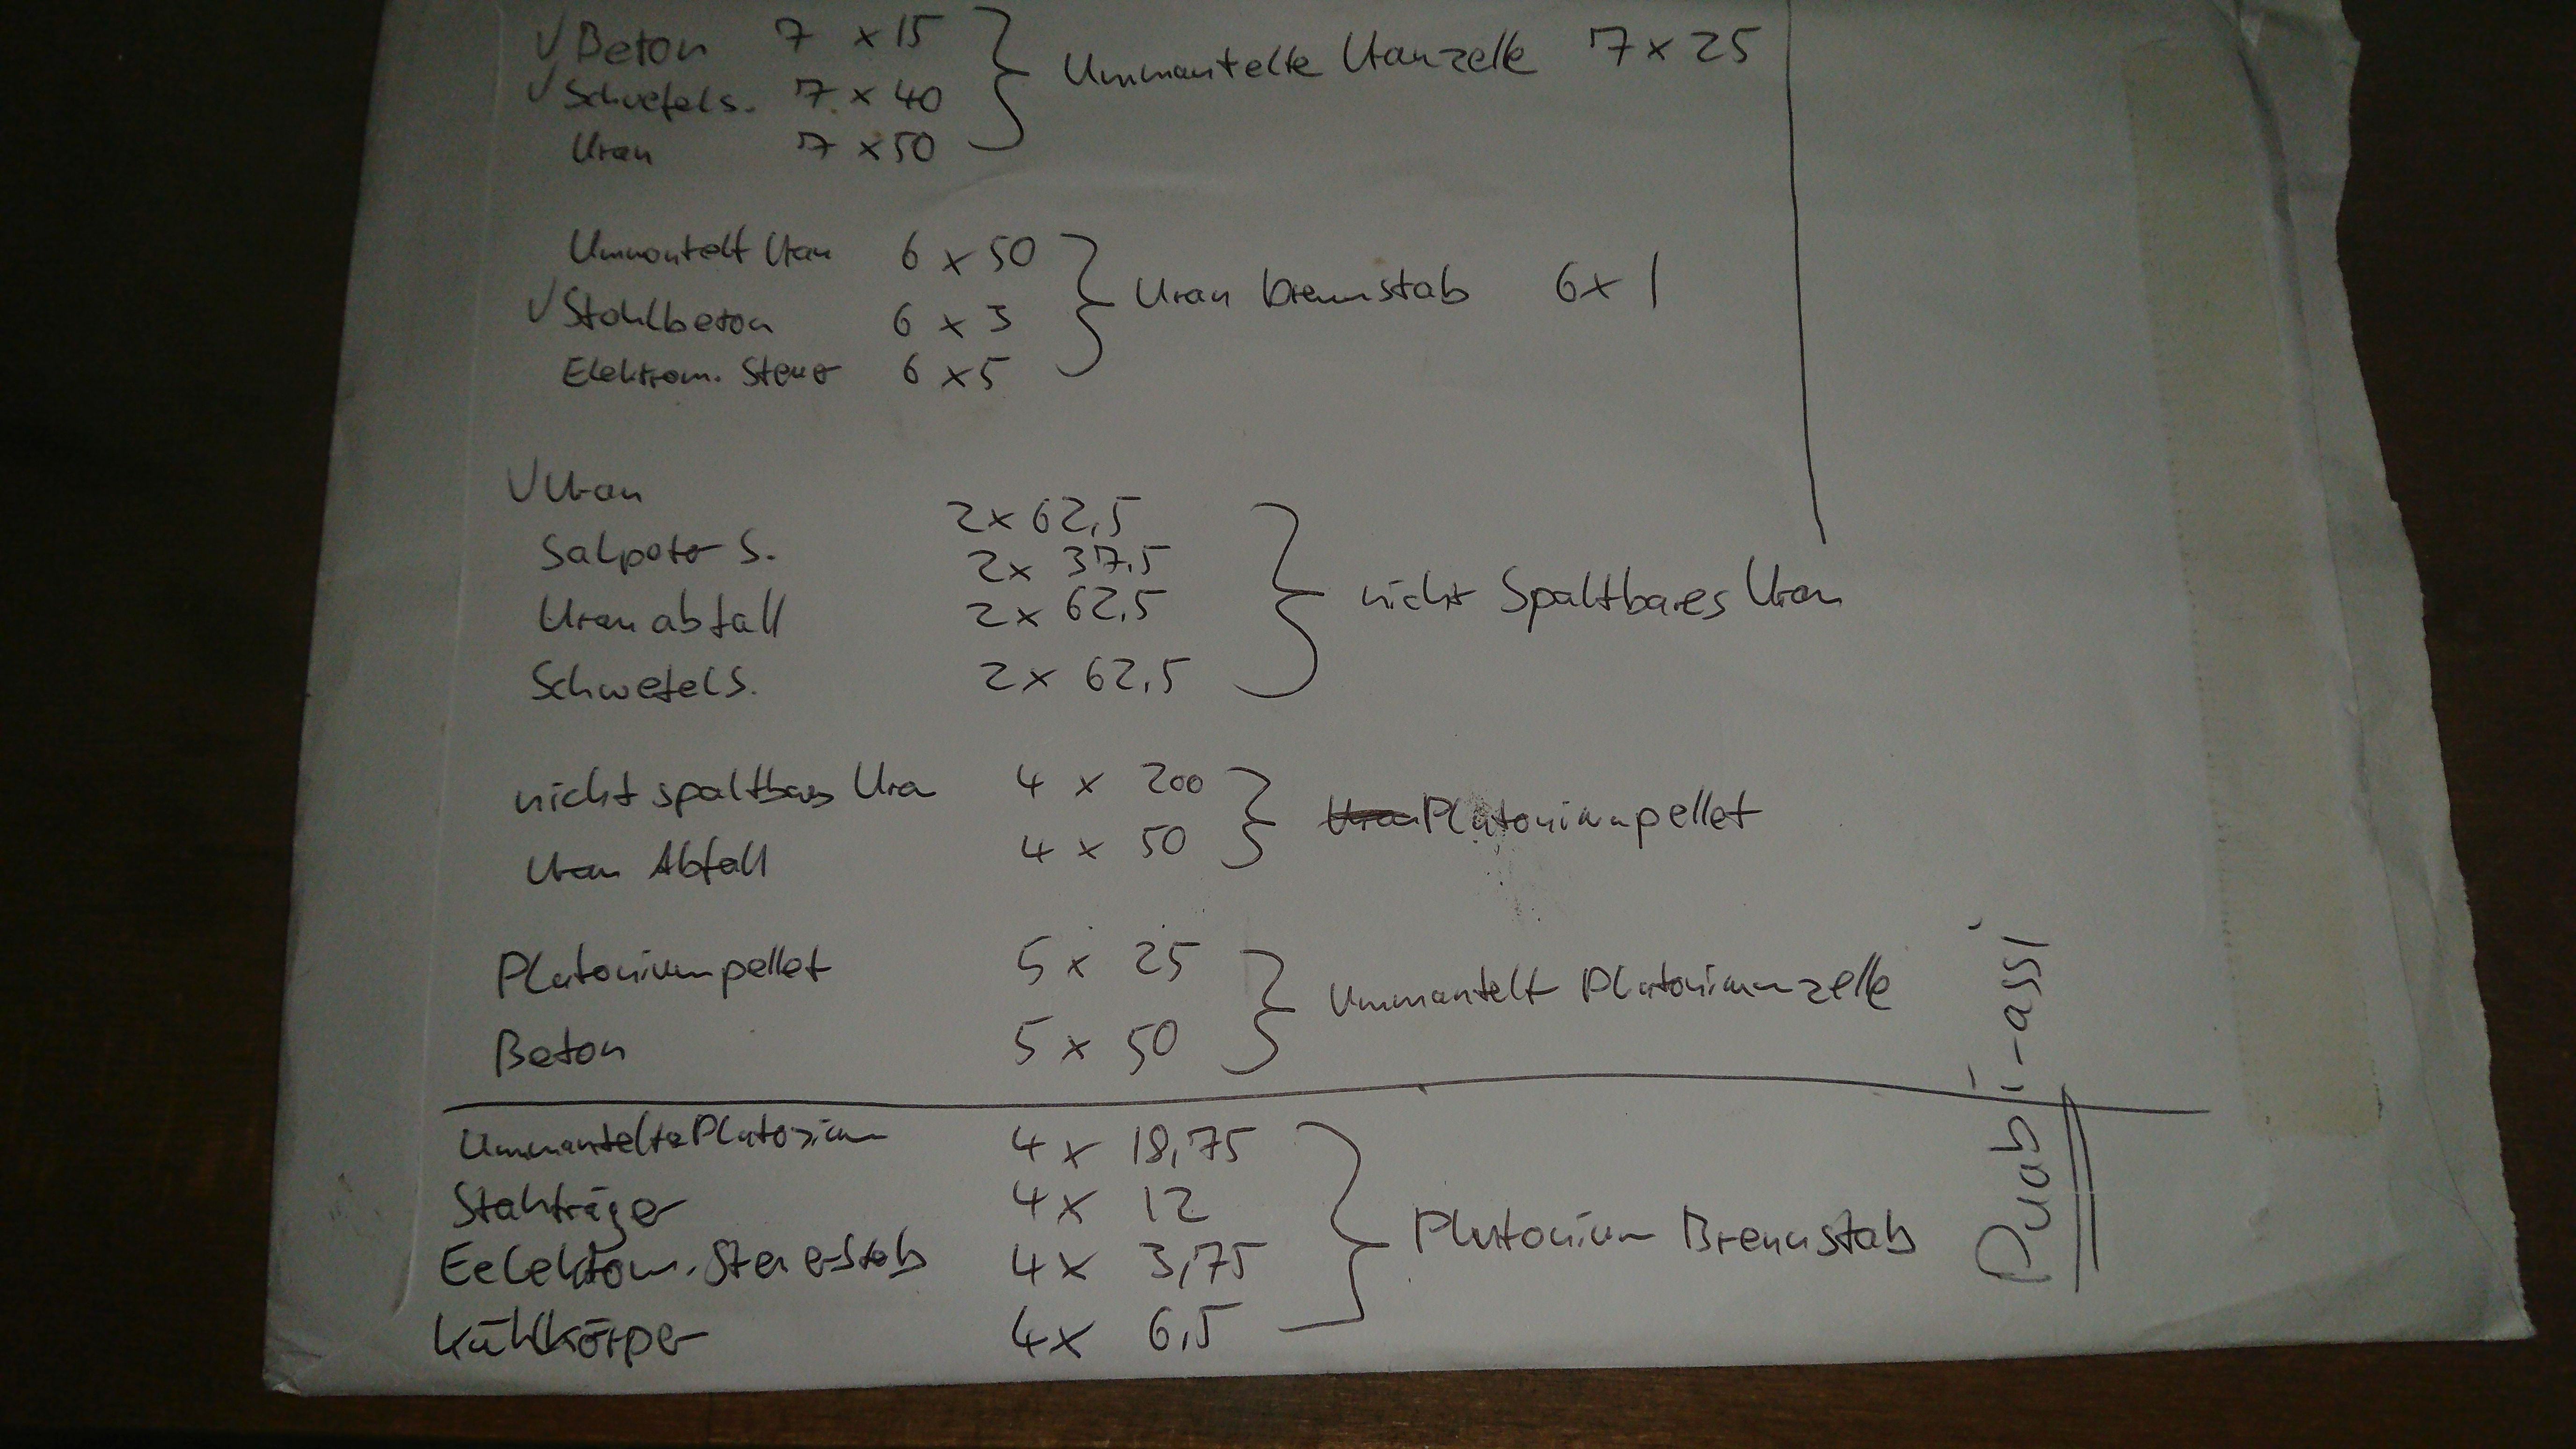 ✓ Beton 7 x 15
✓ Schwefels. 7 x 40
Uran 7 x 50
Ummantelte Uranzelle 7 x 25
Ummantelt Uran 6 x 50
✓ Stahlbeton 6 x 3
Elektrom. Steuer 6 x 5
Uran brennstab 6 x 1
✓ Uran 2 x 62,5
Salpeter S. 2 x 37,5
Uranabfall 2 x 62,5
Schwefels. 2 x 62,5
nicht Spaltbares Uran
nicht spaltbares Uran 4 x 200
Uran Abfall 4 x 50
Plutoniumpellet
Plutoniumpellet 5 x 25
Beton 5 x 50
Ummantelt Plutoniumzelle
Ummantelte Plutonium 4 x 18,75
Stahträger 4 x 12
Eelektom. Steuerstab 4 x 3,75
Kühlkörper 4 x 6,5
Plutonium Brennstab
Puabi-assi